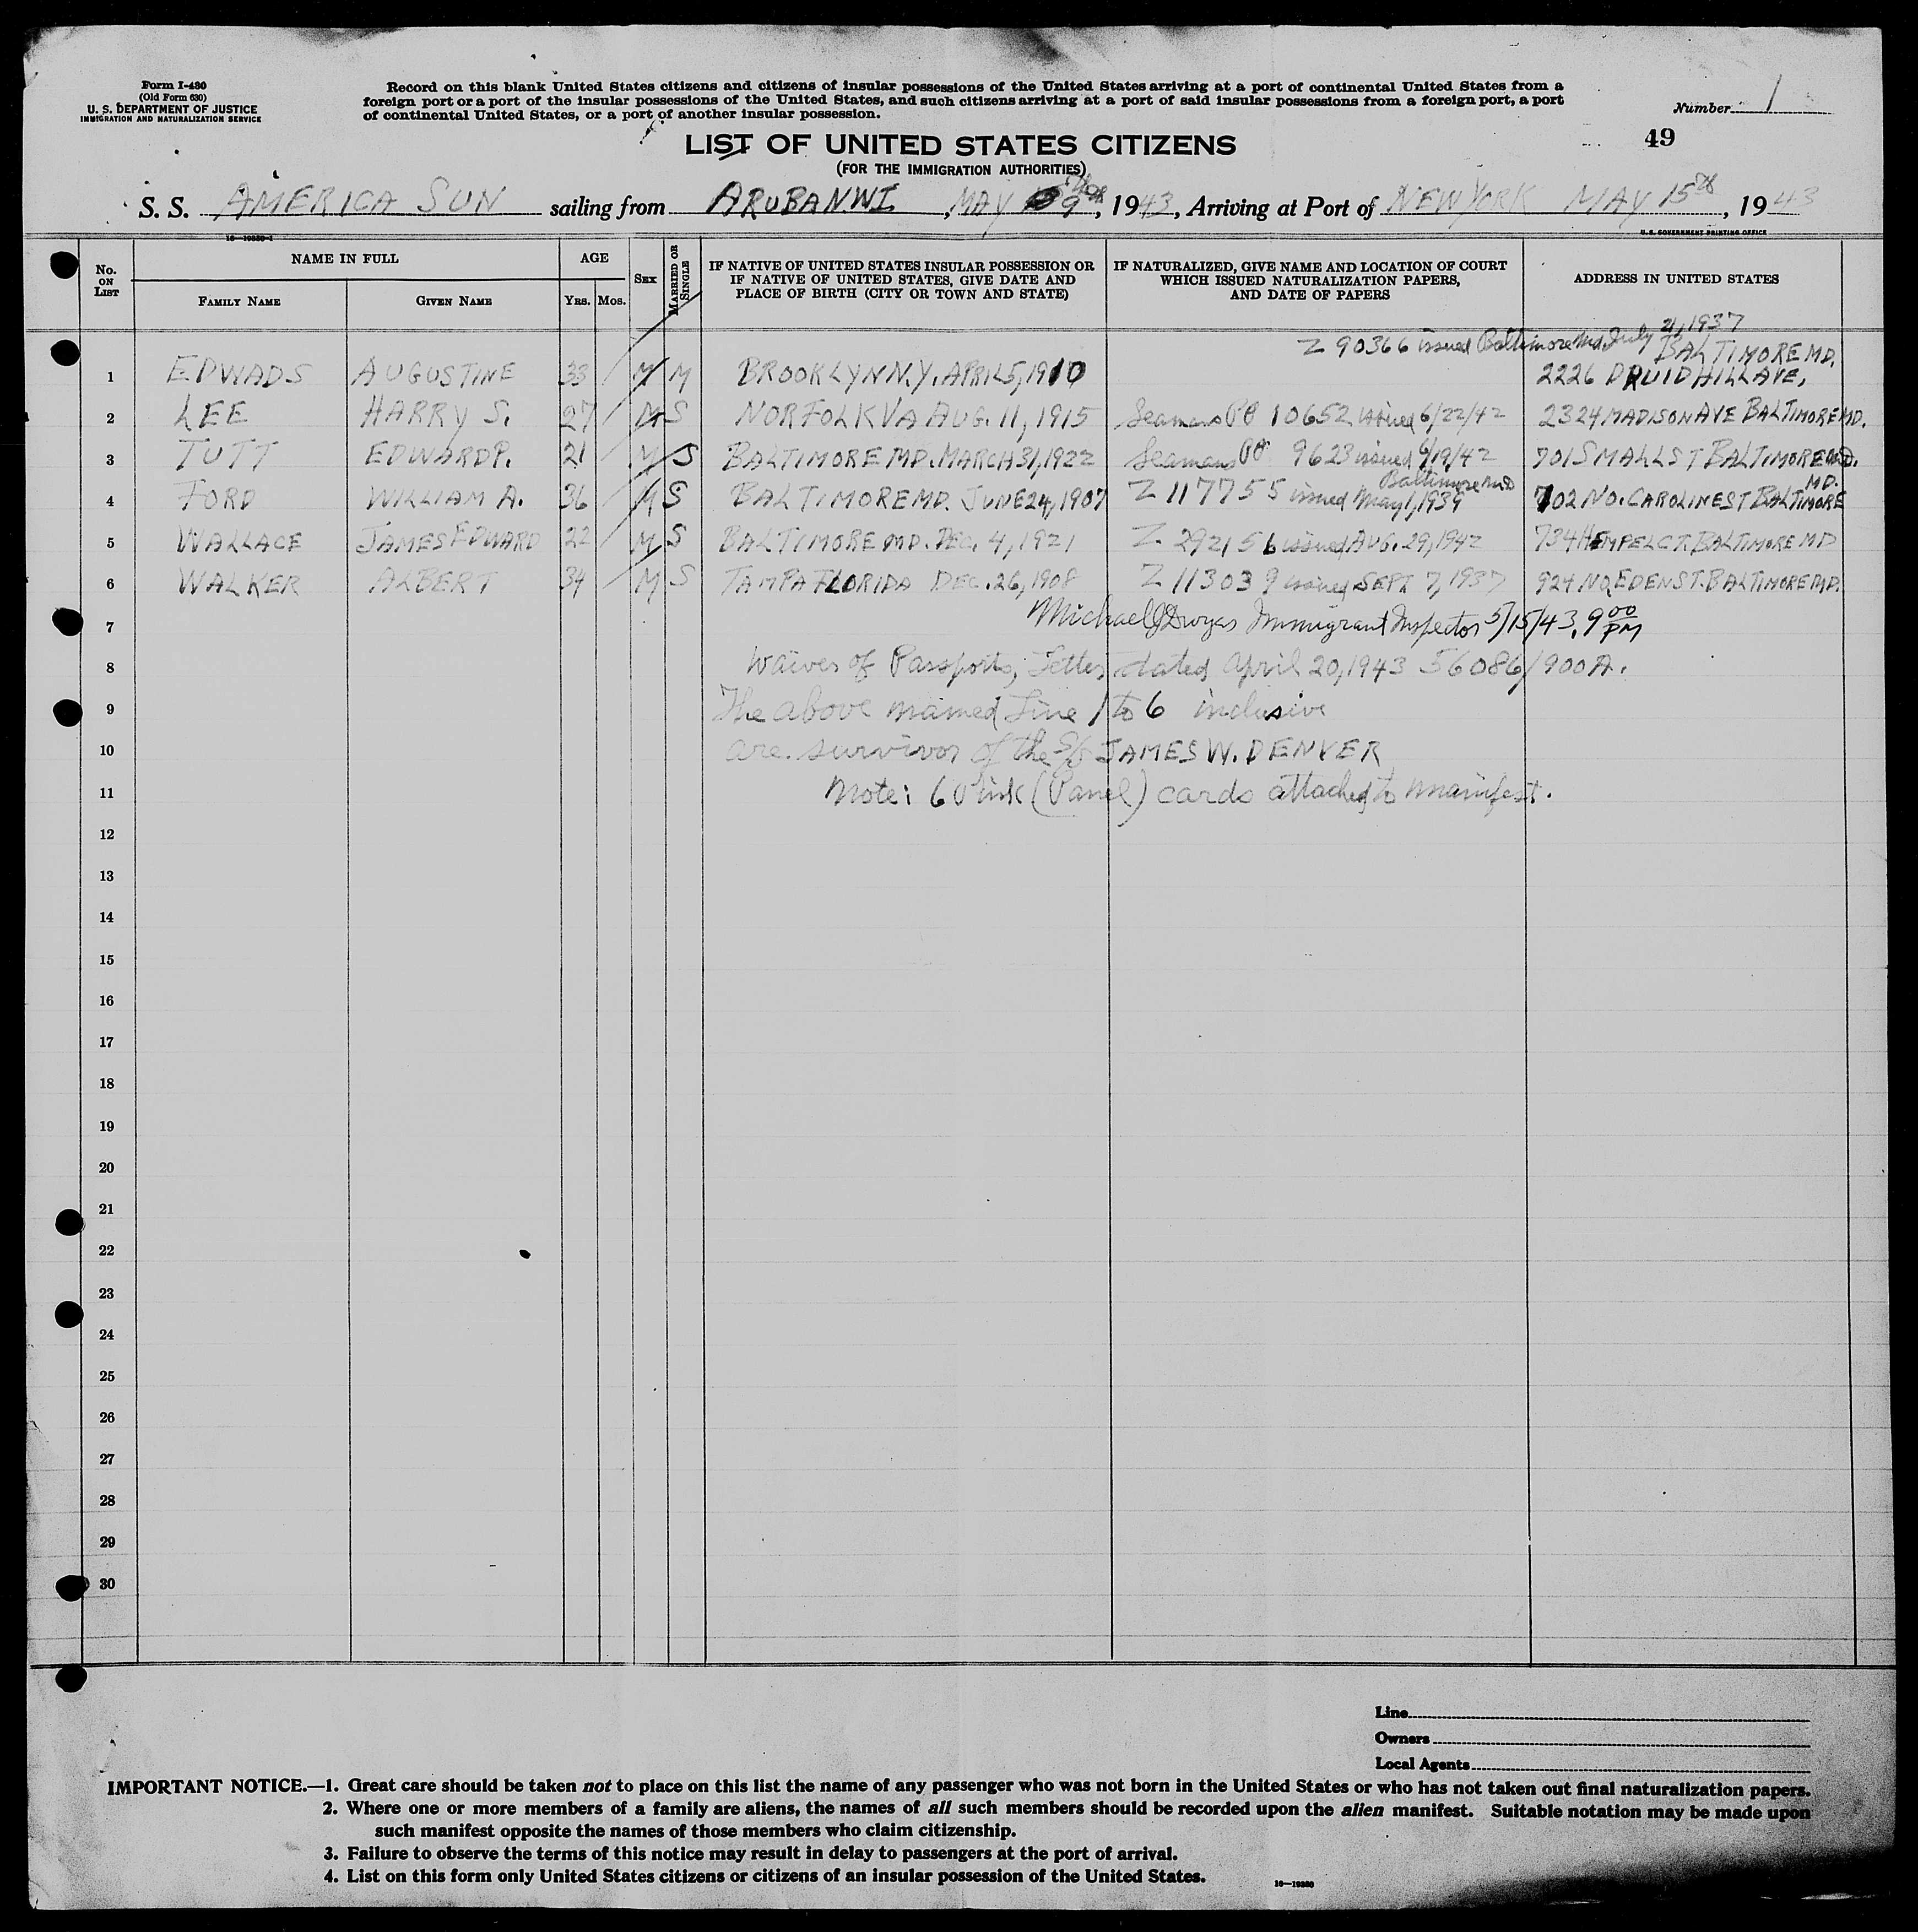 Form I-430
(Old Form 630)
U. S. DEPARTMENT OF JUSTICE
IMMIGRATION AND NATURALIZATION SERVICE
Record on this blank United States citizens and citizens of insular possessions of the United States arriving at a port of continental United States from a
foreign port or a port of the insular possessions of the United States, and such citizens arriving at a port of said insular possessions from a foreign port, a port
of continental United States, or a port of another insular possession.
Number 1
49
LIST OF UNITED STATES CITIZENS
(FOR THE IMMIGRATION AUTHORITIES)
S. S. AMERICA SUN sailing from ARUBA NWI, MAY 9th, 1943, Arriving at Port of NEW YORK MAY 15th, 1943
16—19330-1
U. S. GOVERNMENT PRINTING OFFICE
No. ON LIST
NAME IN FULL
FAMILY NAME
GIVEN NAME
AGE
YRS. MOS.
SEX
MARRIED OR SINGLE
IF NATIVE OF UNITED STATES INSULAR POSSESSION OR
IF NATIVE OF UNITED STATES, GIVE DATE AND
PLACE OF BIRTH (CITY OR TOWN AND STATE)
IF NATURALIZED, GIVE NAME AND LOCATION OF COURT
WHICH ISSUED NATURALIZATION PAPERS,
AND DATE OF PAPERS
ADDRESS IN UNITED STATES
Z 90366 issued Baltimore Md July 21, 1937
BALTIMORE MD.
1 EDWADS AUGUSTINE 33 M M BROOKLYN N.Y. APRIL 5, 1910 2226 DRUID HILL AVE,
2 LEE HARRY S. 27 M S NORFOLK VA AUG. 11, 1915 Seamans PP 10652 issued 6/22/42 2324 MADISON AVE BALTIMORE MD.
3 TUTT EDWARD P. 21 M S BALTIMORE MD. MARCH 31, 1922 Seamans PP 9623 issued 6/19/42 701 SMALL ST BALTIMORE MD.
Baltimore Md
MD.
4 FORD WILLIAM A. 36 M S BALTIMORE MD. JUNE 24, 1907 Z 117755 issued May 1, 1939 702 NO. CAROLINE ST BALTIMORE
5 WALLACE JAMES EDWARD 22 M S BALTIMORE MD. DEC. 4, 1921 Z 292156 issued AUG. 29, 1942 734 HEMPEL CT. BALTIMORE MD
6 WALKER ALBERT 34 M S TAMPA FLORIDA DEC. 26, 1908 Z 113039 issued SEPT 7, 1937 924 NO. EDEN ST. BALTIMORE MD.
7 Michael J Dwyer Immigrant Inspector 5/15/43, 9 00 PM
8 Waiver of Passports, Letter dated April 20, 1943 56086/900A.
9 The above named Line 1 to 6 inclusive
10 are survivor of the S/S JAMES W. DENVER
11 Note: 6 Pink (Panel) cards attached to manifest.
12
13
14
15
16
17
18
19
20
21
22
23
24
25
26
27
28
29
30
Line
Owners
Local Agents
IMPORTANT NOTICE.—1. Great care should be taken not to place on this list the name of any passenger who was not born in the United States or who has not taken out final naturalization papers.
2. Where one or more members of a family are aliens, the names of all such members should be recorded upon the alien manifest. Suitable notation may be made upon
such manifest opposite the names of those members who claim citizenship.
3. Failure to observe the terms of this notice may result in delay to passengers at the port of arrival.
4. List on this form only United States citizens or citizens of an insular possession of the United States.
16—19330